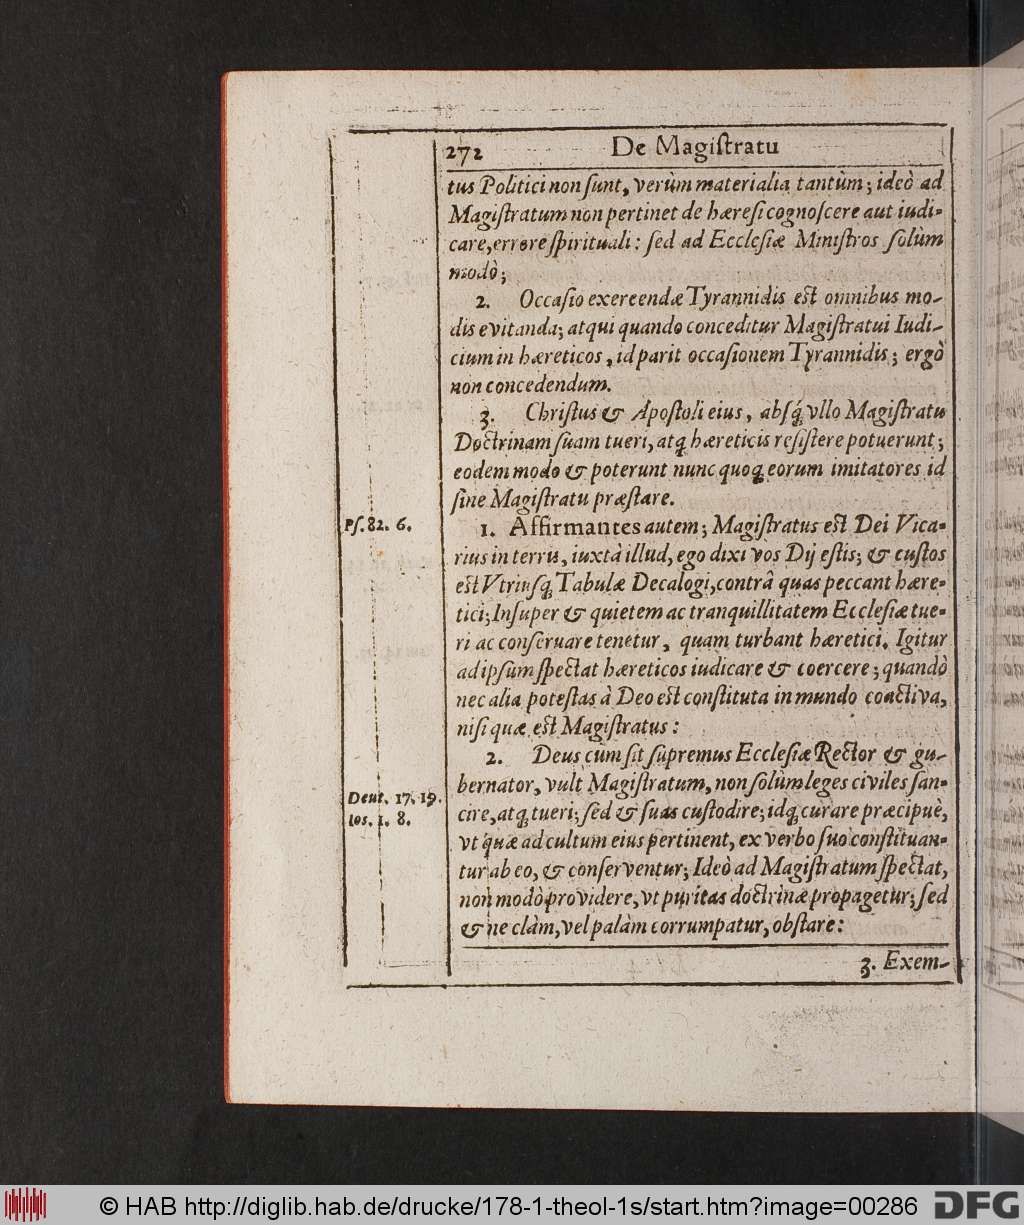 272 De Magiſtratu
tus Politici non ſunt, verùm materialia tantùm; ideò ad
Magiſtratum non pertinet de hæreſi cognoſcere aut iudi-
care, errore ſpirituali: ſed ad Eccleſiæ Miniſtros ſolùm
modò;
2. Occaſio exereendæ Tyrannidis est omnibus mo-
dis evitanda; atqui quando conceditur Magiſtratui Iudi-
cium in hæreticos, id parit occaſionem Tyrannidis; ergò
non concedendum.
3. Chriſtus & Apoſtoli eius, abſq́; vllo Magiſtratu
Doctrinam ſuam tueri, atq; hæreticis reſiſtere potuerunt;
eodem modo & poterunt nunc quoq; eorum imitatores id
ſine Magiſtratu præſtare.
Pſ. 82. 6.
1. Affirmantes autem; Magiſtratus est Dei Vica-
rius in terris, iuxtà illud, ego dixi vos Dij eſtis; & cuſtos
est Vtriuſq; Tabulæ Decalogi, contrâ quas peccant hære-
tici; Inſuper & quietem ac tranquillitatem Eccleſiæ tue-
ri ac conſeruare tenetur, quam turbant hæretici. Igitur
ad ipſum ſpectat hæreticos iudicare & coercere; quandò
nec alia poteſtas à Deo est conſtituta in mundo coactiva,
niſi quæ est Magiſtratus:
2. Deus cum ſit ſupremus Eccleſiæ Rector & gu-
bernator, vult Magiſtratum, non ſolùm leges civiles ſan-
Deut. 17. 19.
Ios. 1. 8.
cire, atq; tueri; ſed & ſuas cuſtodire; idq; curare præcipuè,
vt quæ ad cultum eius pertinent, ex verbo ſuo conſtituan-
tur ab eo, & conſerventur; Ideò ad Magiſtratum ſpectat,
non modò providere, vt puritas doctrinæ propagetur; ſed
& ne clàm, vel palàm corrumpatur, obſtare:
3. Exem-
© HAB http://diglib.hab.de/drucke/178-1-theol-1s/start.htm?image=00286
DFG